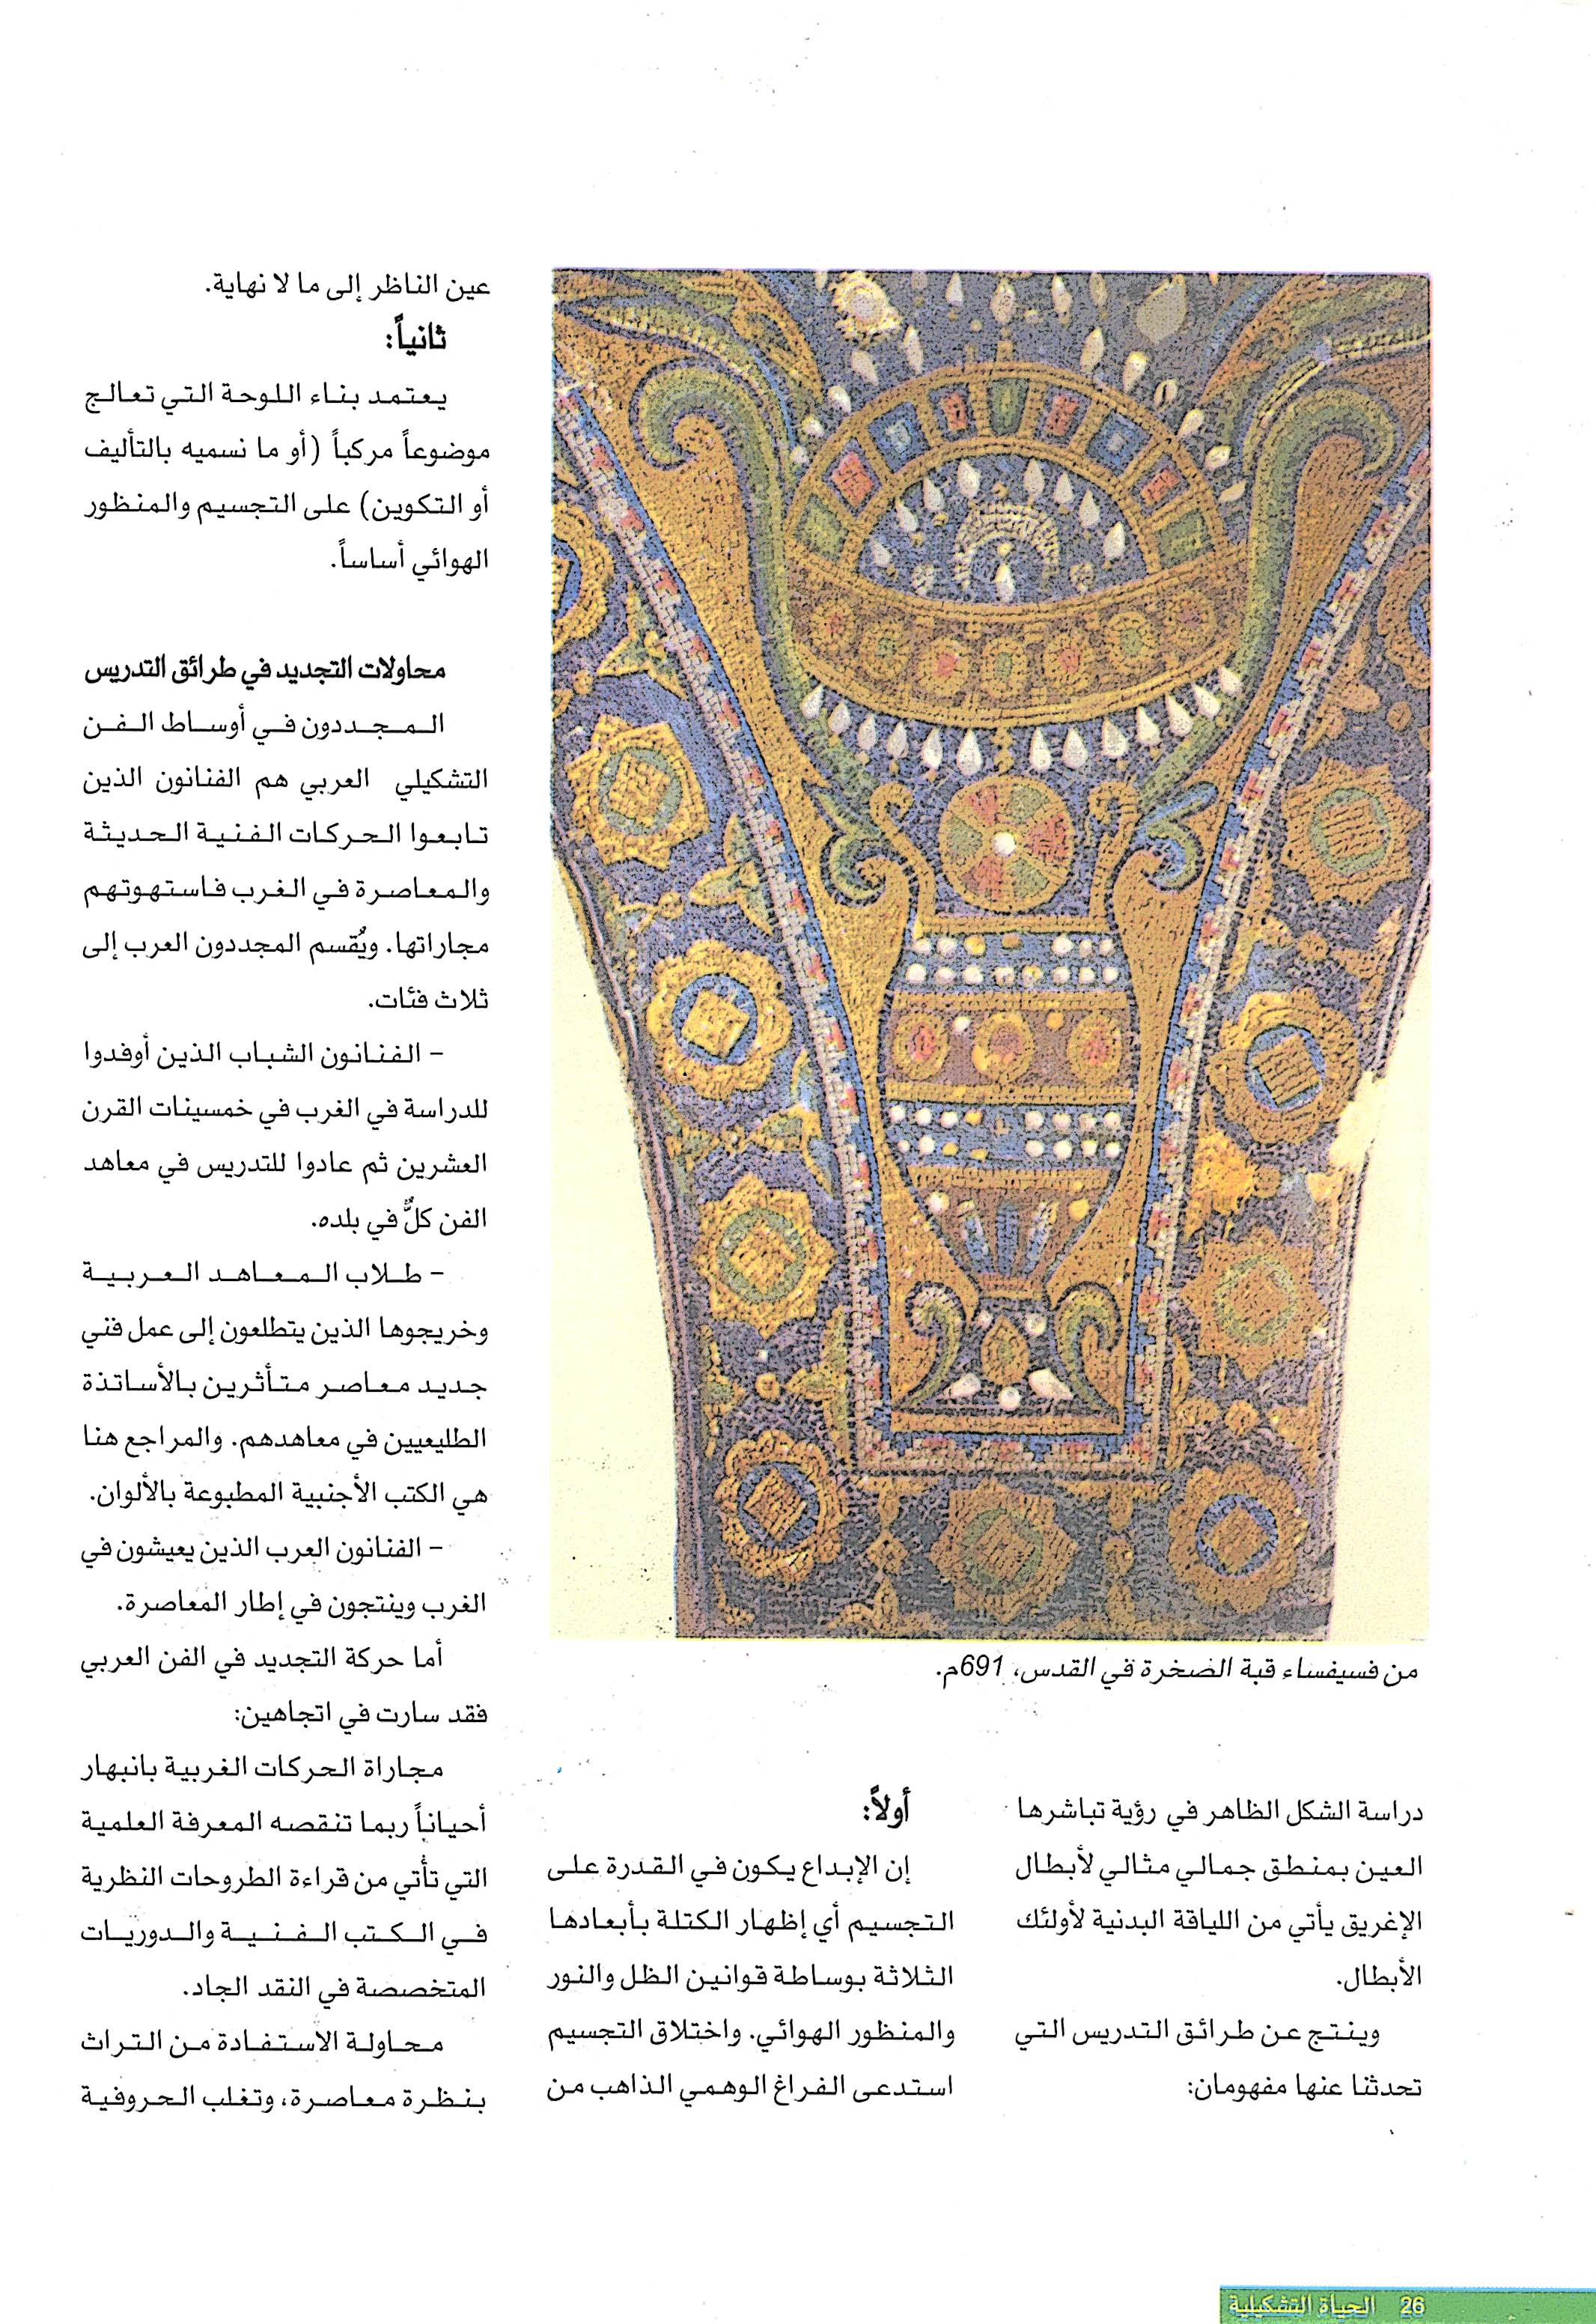 من فسيفساء قبة الصخرة في القدس، 691م.
دراسة الشكل الظاهر في رؤية تباشرها
العين بمنطق جمالي مثالي لأبطال
الإغريق يأتي من اللياقة البدنية لأولئك
الأبطال.
وينتج عن طرائق التدريس التي
تحدثنا عنها مفهومان:
أولاً:
إن الإبداع يكون في القدرة على
التجسيم أي إظهار الكتلة بأبعادها
الثلاثة بوساطة قوانين الظل والنور
والمنظور الهوائي. واختلاق التجسيم
استدعى الفراغ الوهمي الذاهب من
عين الناظر إلى ما لا نهاية.
ثانياً:
يعتمد بناء اللوحة التي تعالج
موضوعاً مركباً (أو ما نسميه بالتأليف
أو التكوين) على التجسيم والمنظور
الهوائي أساساً.
محاولات التجديد في طرائق التدريس
المجددون في أوساط الفن
التشكيلي العربي هم الفنانون الذين
تابعوا الحركات الفنية الحديثة
والمعاصرة في الغرب فاستهوتهم
مجاراتها. ويُقسم المجددون العرب إلى
ثلاث فئات.
– الفنانون الشباب الذين أوفدوا
للدراسة في الغرب في خمسينات القرن
العشرين ثم عادوا للتدريس في معاهد
الفن كلٌّ في بلده.
– طلاب المعاهد العربية
وخريجوها الذين يتطلعون إلى عمل فني
جديد معاصر متأثرين بالأساتذة
الطليعيين في معاهدهم. والمراجع هنا
هي الكتب الأجنبية المطبوعة بالألوان.
– الفنانون العرب الذين يعيشون في
الغرب وينتجون في إطار المعاصرة.
أما حركة التجديد في الفن العربي
فقد سارت في اتجاهين:
مجاراة الحركات الغربية بانبهار
أحياناً ربما تنقصه المعرفة العلمية
التي تأتي من قراءة الطروحات النظرية
في الكتب الفنية والدوريات
المتخصصة في النقد الجاد.
محاولة الاستفادة من التراث
بنظرة معاصرة، وتغلب الحروفية
26 الحياة التشكيلية